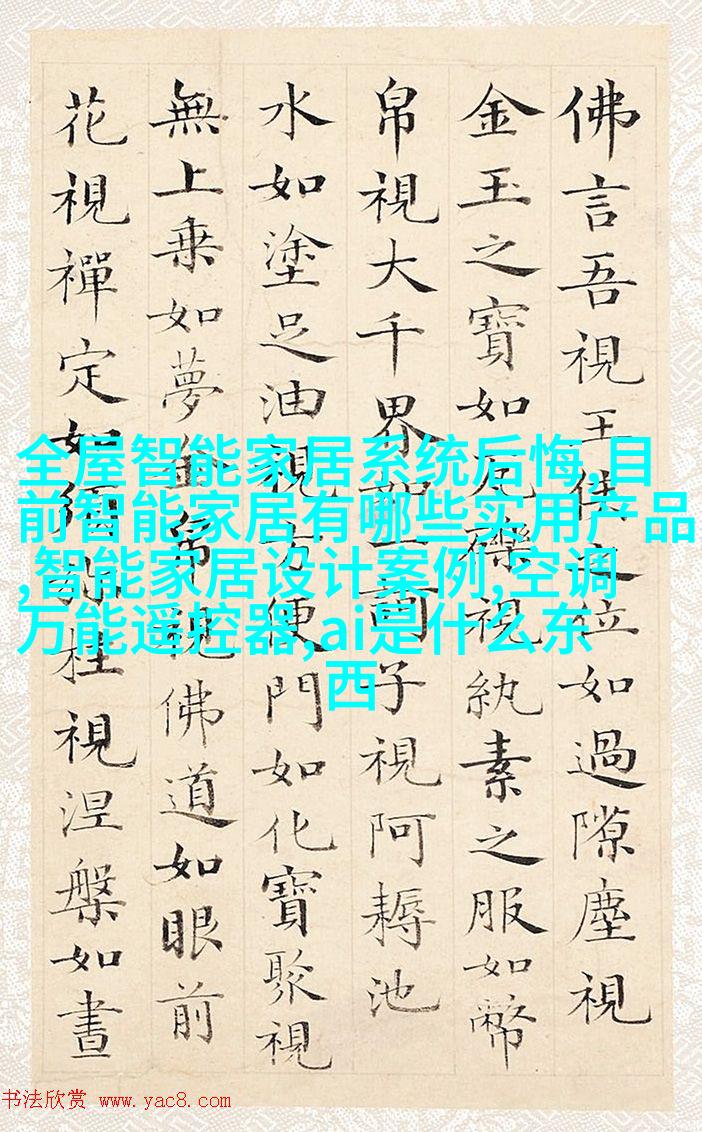 佛言吾視王侯之位如過隙塵視
金玉之寶如瓦礫視紈素之服如幣
帛視大千界如一訶子視阿耨池
水如塗足油視方便門如化寶聚視
無上乗如夢金帛視佛道如眼前
花視禪定如須弥柱視涅槃如晝
全屋智能家居系统后悔,目
前智能家居有哪些实用产品
,智能家居设计案例,空调
万能遥控器,ai是什么东
西
书法欣赏 www.yac8.com